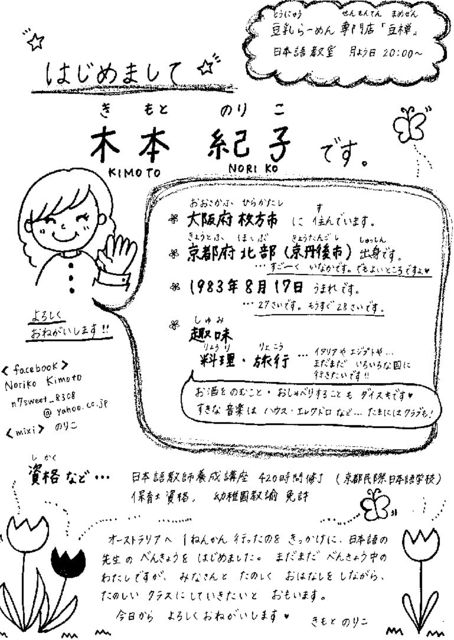 とうにゅう せんもんてん まめぜん
豆乳らーめん 専門店「豆禅」
日本語教室 月よう日 20:00～
はじめまして
き もと のり こ
木本 紀子 です。
KIMOTO NORIKO
おおさかふ ひらかたし す
大阪府 枚方市 に 住んでいます。
きょうとふ ほくぶ きょうたんごし しゅっしん
京都府 北部 (京丹後市) 出身です。
…すごーく いなかです。でもよいところです♥
1983年 8月 17日 うまれです。
…27さいです。もうすぐ 28さいです。
しゅみ
趣味
りょうり りょこう
料理・旅行 … イタリアや エジプトや…
まだまだ いろいろな国に
行きたいです!!
お酒をのむこと・おしゃべりすることも ダイスキです♥
すきな 音楽は ハウス・エレクトロ など… たまにはクラブも!
よろしく
おねがいします!!
<facebook>
Noriko Kimoto
n7sweet_8308
@yahoo.co.jp
<mixi> のりこ
しかく
資格 など… 日本語教師養成講座 420時間修了 (京都民際日本語学校)
保育士資格、 幼稚園教諭 免許
オーストラリアへ 1ねんかん 行ったのを きっかけに、日本語の
先生の べんきょうを はじめました。 まだまだ べんきょう中の
わたしですが、 みなさんと たのしく おはなしを しながら、
たのしい クラスに していきたいと おもいます。
今日から よろしくおねがいします♥ きもと のりこ